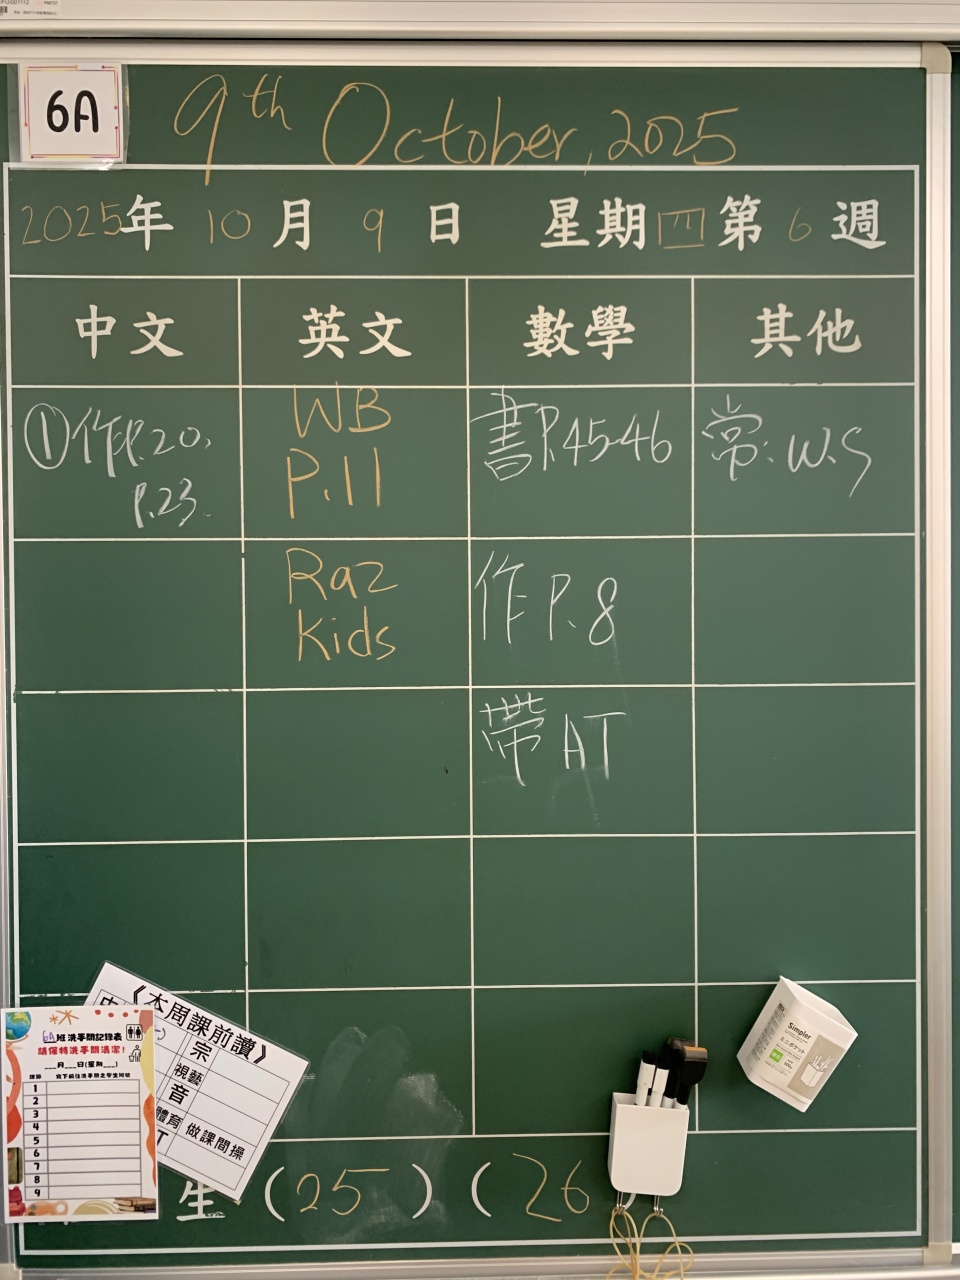 6A
9th October, 2025
2025年 10月 9日 星期四 第6週
中文 英文 數學 其他
①作P.20, P.23. WB P.11 書P.45-46 常: W.S
Raz Kids 作 P. 8
帶 AT
《本周課前讀》
宗
視藝
音
體育 做課間操
6A班洗手間記錄表
請保持洗手間清潔!
___月___日(星期___)
1
2
3
4
5
6
7
8
9
Simpler
ミニポケット
生 (25) (26